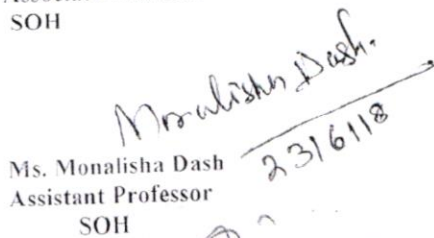 SOH
Monalisha Dash.
23/6/18
Ms. Monalisha Dash
Assistant Professor
SOH